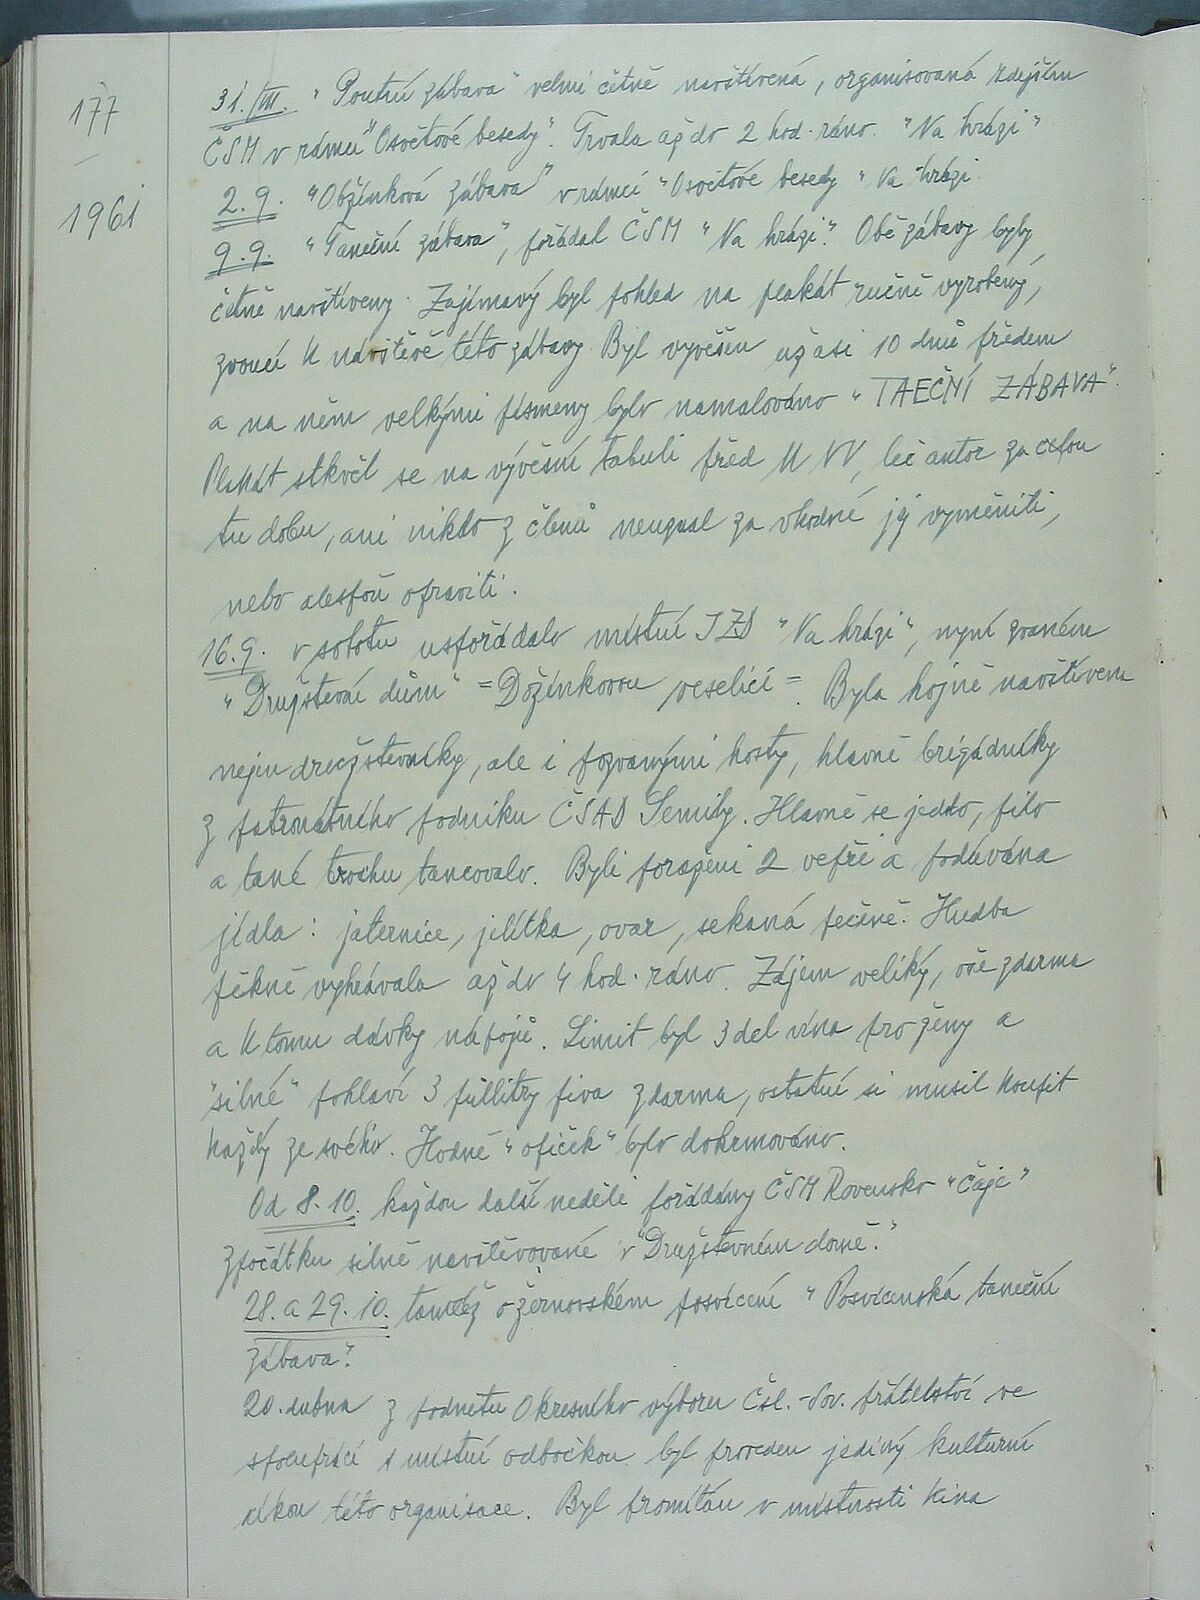 177
1961
31./III. "Poutní zábava" velmi četně navštívená, organisovaná zdejším
ČSM v rámci "Osvětové besedy". Trvala až do 2 hod. ráno. "Na hrázi"
2.9. "Obžínková zábava" v rámci "Osvětové besedy" Na hrázi.
9.9. "Taneční zábava", pořádal ČSM "Na hrázi". Obě zábavy byly
četně navštíveny. Zajímavý byl pohled na plakát ručně vyrobený,
zvoucí k návštěvě této zábavy. Byl vyvěšen už asi 10 dnů předem
a na něm velkými písmeny bylo namalováno "TAEČNÍ ZÁBAVA".
Plakát stkvěl se na vývěsní tabuli před MNV, leč autor za celou
tu dobu, ani nikdo z členů neuznal za vhodné jej vyměniti,
nebo alespoň opraviti.
16.9. v sobotu uspořádalo místní JZD "Na hrázi", nyní zvaném
"Družstevní dům" =Dožínkovou veselici=. Byla hojně navštívena
nejen družstevníky, ale i pozvanými hosty, hlavně brigádníky
z patronátního podniku ČSAD Semily. Hlavně se jedlo, pilo
a také trochu tancovalo. Byli poraženi 2 vepři a podávána
jídla: jaternice, jelítka, ovar, sekaná pečeně. Hudba
pěkně vyhrávala až do 4 hod. ráno. Zájem veliký, vše zdarma
a k tomu dávky nápojů. Limit byl 3 del vína pro ženy a
"silné" pohlaví 3 půllitry piva zdarma, ostatní si musil koupit
každý ze svého. Hodně "opiček" bylo dokrmováno.
Od 8.10. každou další neděli pořádány ČSM Rovensko "Čaje"
zpočátku silně navštěvované v "Družstevním domě."
28. a 29.10. tamtéž o žernovském posvícení "Posvícenská taneční
zábava".
20. dubna z podnětu Okresního výboru Čsl.-Sov. přátelství ve
spolupráci s místní odbočkou byl proveden jediný kulturní
úkon této organisace. Byl promítán v místnosti kina